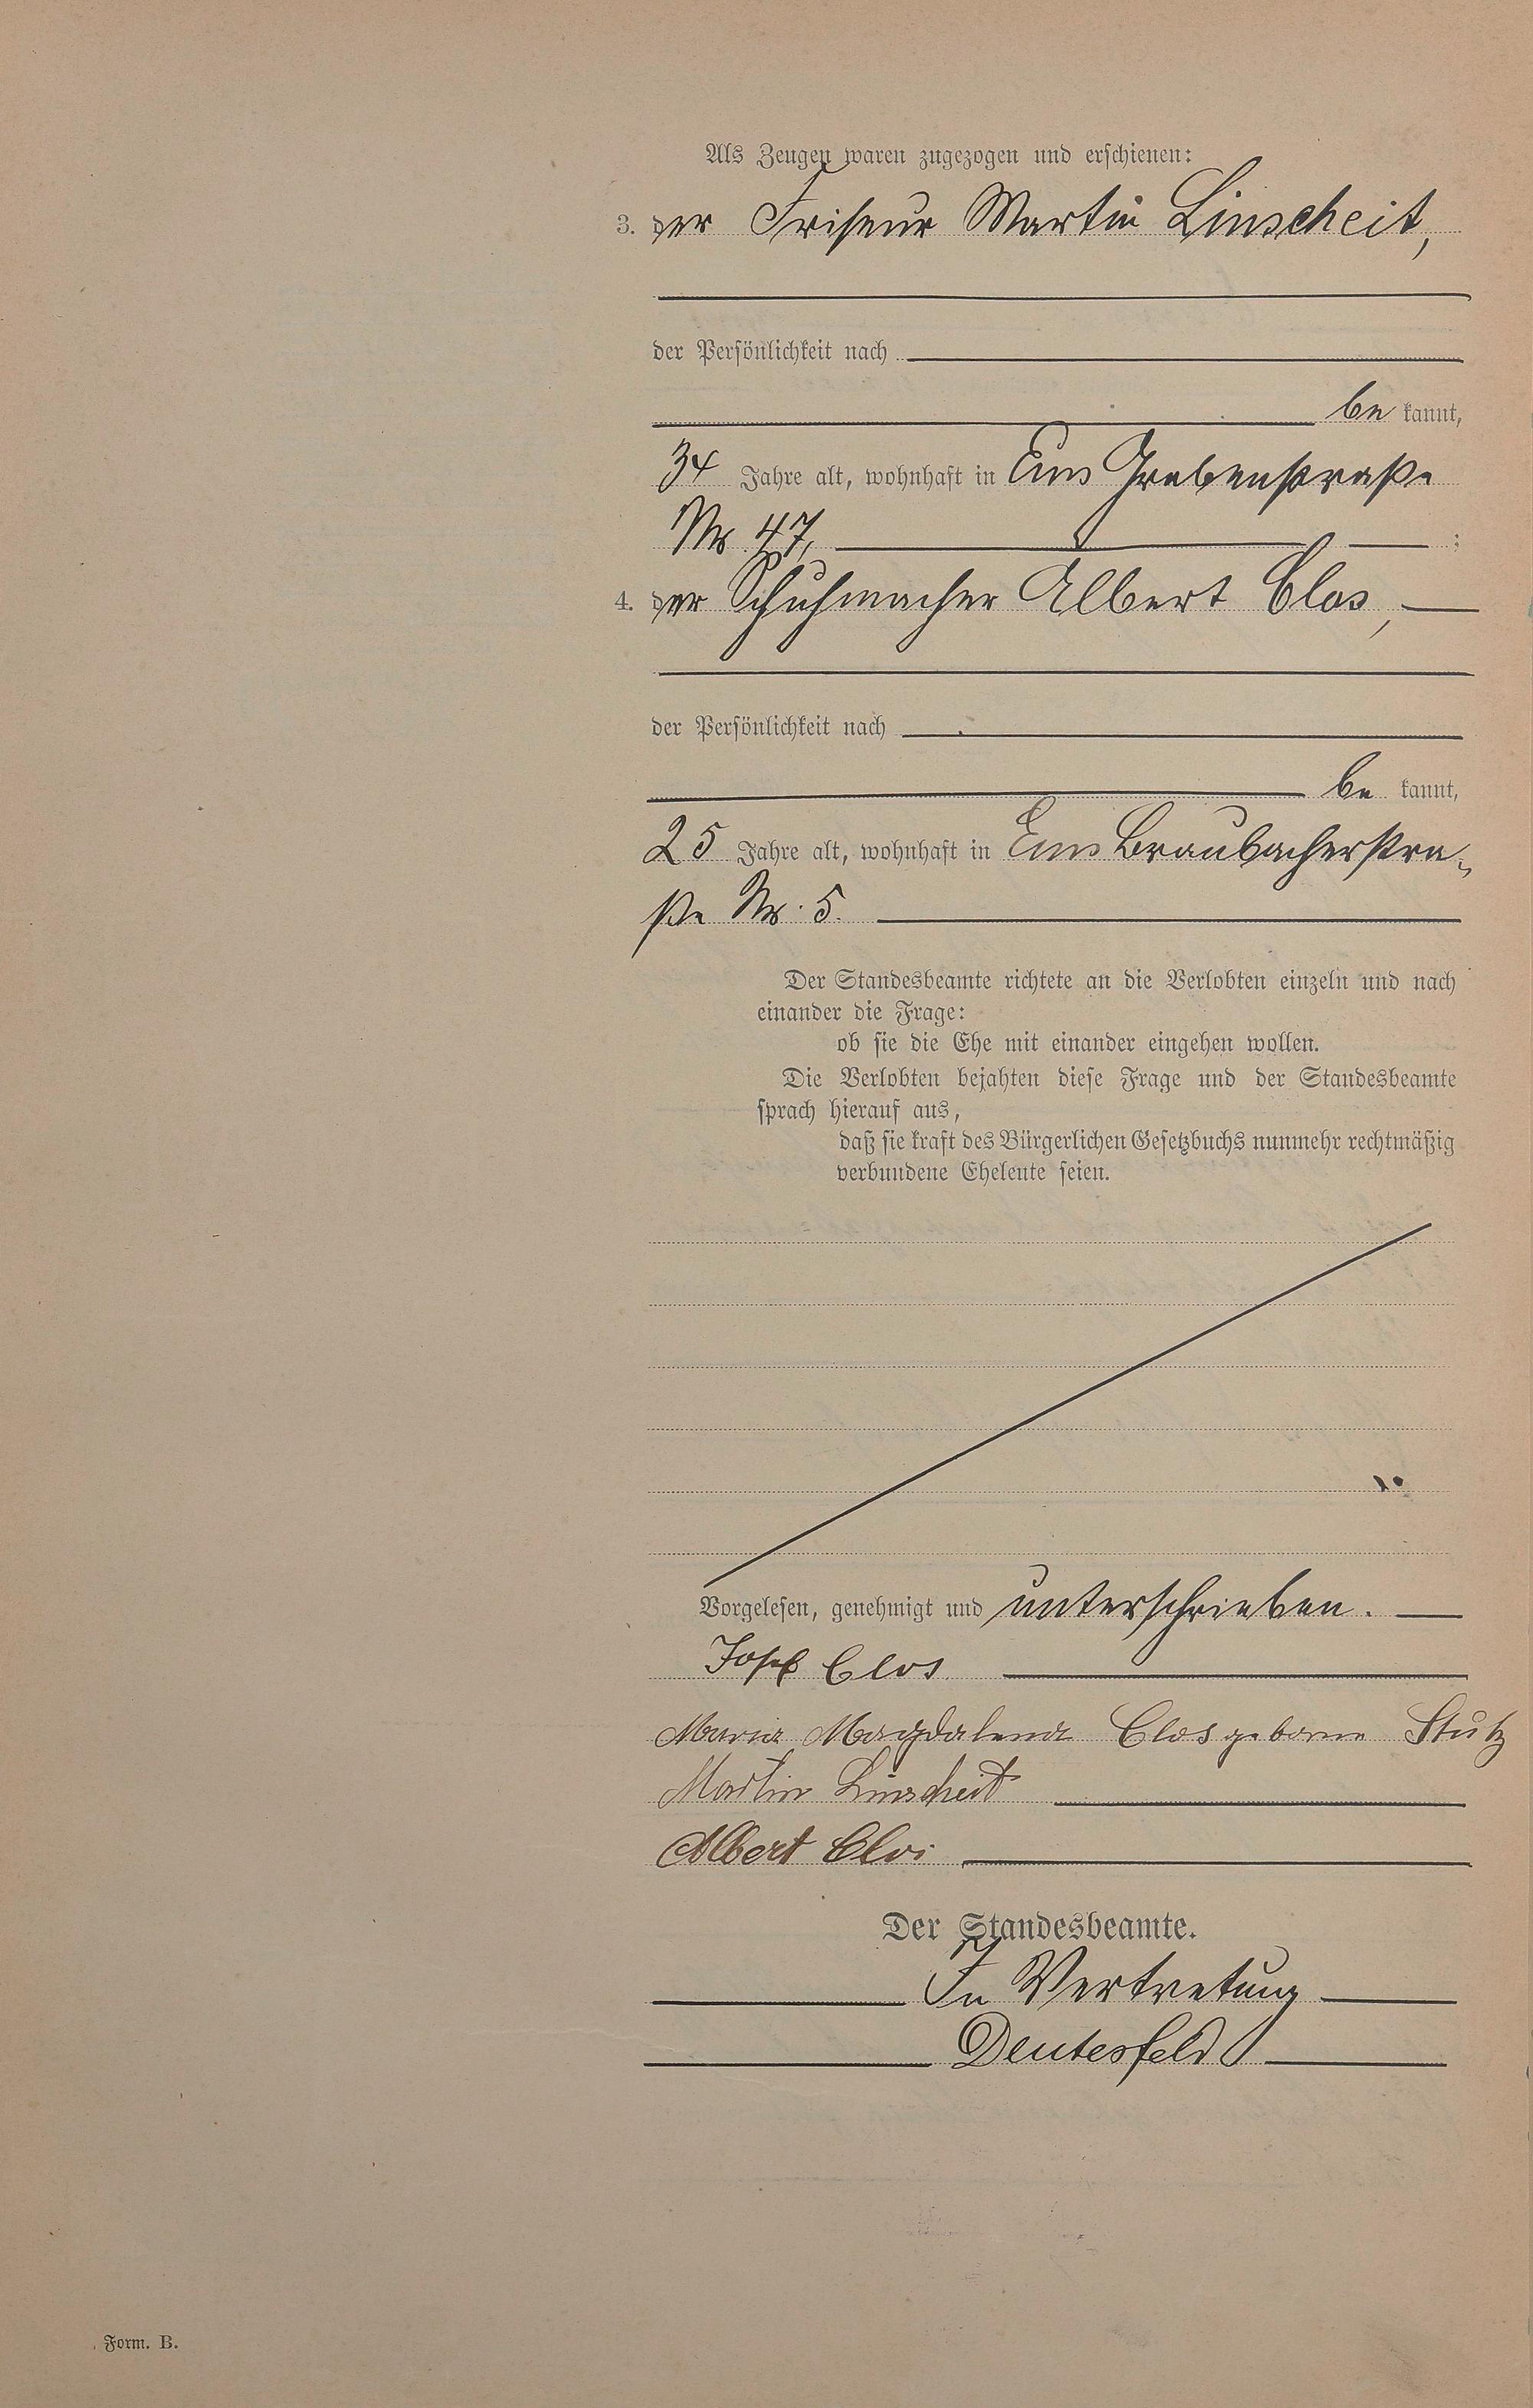 Als Zeugen waren zugezogen und erschienen:
3. der Friseur Martin Linscheit,
der Persönlichkeit nach
be kannt,
34 Jahre alt, wohnhaft in Ems Grabenstraße
Nr. 47, ;
4. der Schuhmacher Albert Clos,
der Persönlichkeit nach
be kannt,
25 Jahre alt, wohnhaft in Ems Braubacherstra-
ße Nr. 5.
Der Standesbeamte richtete an die Verlobten einzeln und nach
einander die Frage:
ob sie die Ehe mit einander eingehen wollen.
Die Verlobten bejahten diese Frage und der Standesbeamte
sprach hierauf aus,
daß sie kraft des Bürgerlichen Gesetzbuchs nunmehr rechtmäßig
verbundene Eheleute seien.
Vorgelesen, genehmigt und unterschrieben.
Josef Clos
Maria Magdalena Clos geborne Stutz
Martin Linscheit
Albert Clos
Der Standesbeamte.
In Vertretung
Deutesfeld
Form. B.